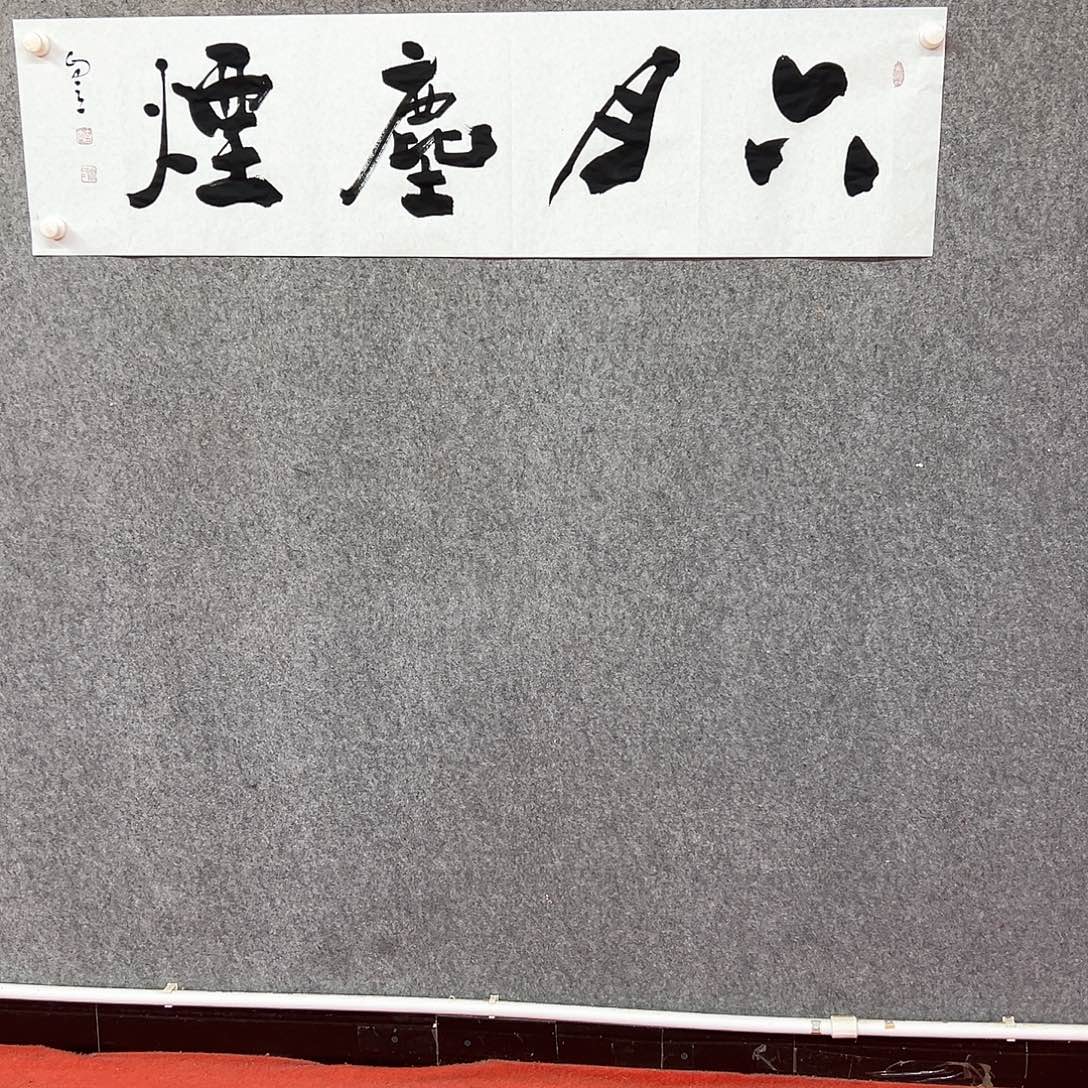 六月塵煙